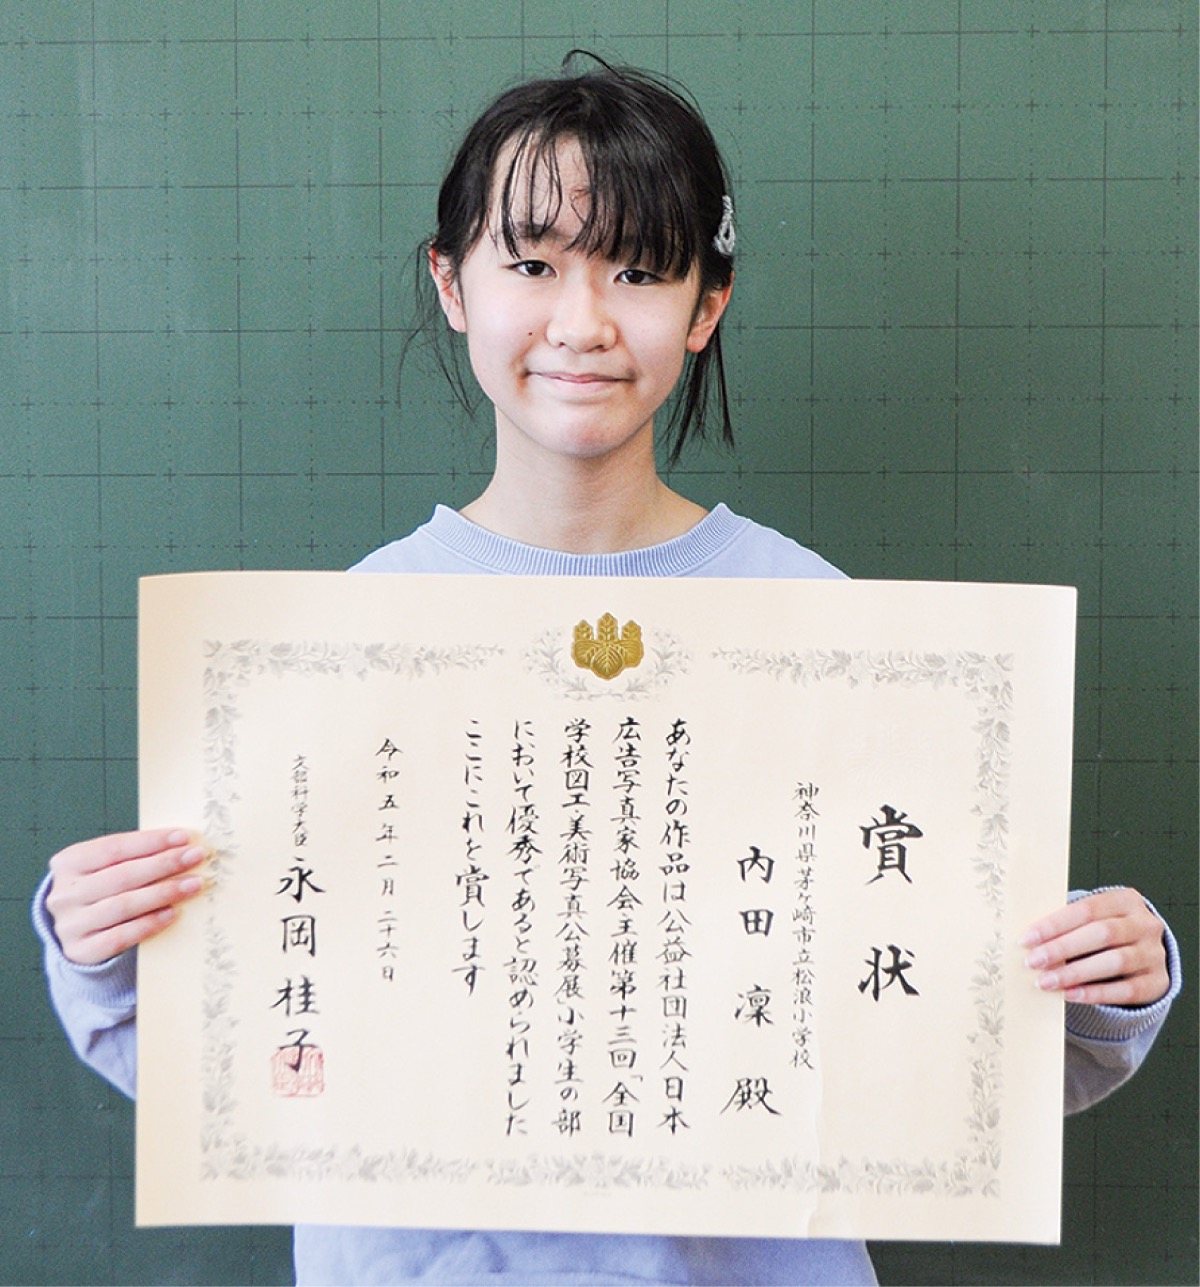 賞状
神奈川県茅ヶ崎市立松浪小学校
内田凜殿
あなたの作品は公益社団法人日本
広告写真家協会主催第十三回「全国
学校図工・美術写真公募展」小学生の部
において優秀であると認められました
ここにこれを賞します
令和五年二月二十六日
文部科学大臣 永岡桂子